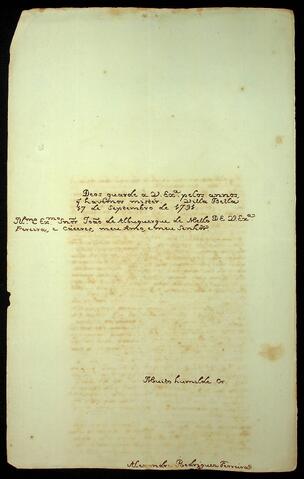 Deos guarde a V. Exª. pelos annos,
q̃ havemos mister. Villa Bella
17 de Septembro de 1791.
Illmo. e Exmo. Snõr João de Albuquerque de Mello
Pereira, e Cáceres, meu Amo, e meu Senhõr
DE V. Exª.
Muito humilde Cr.
Alexandre Rodrigues Ferreira